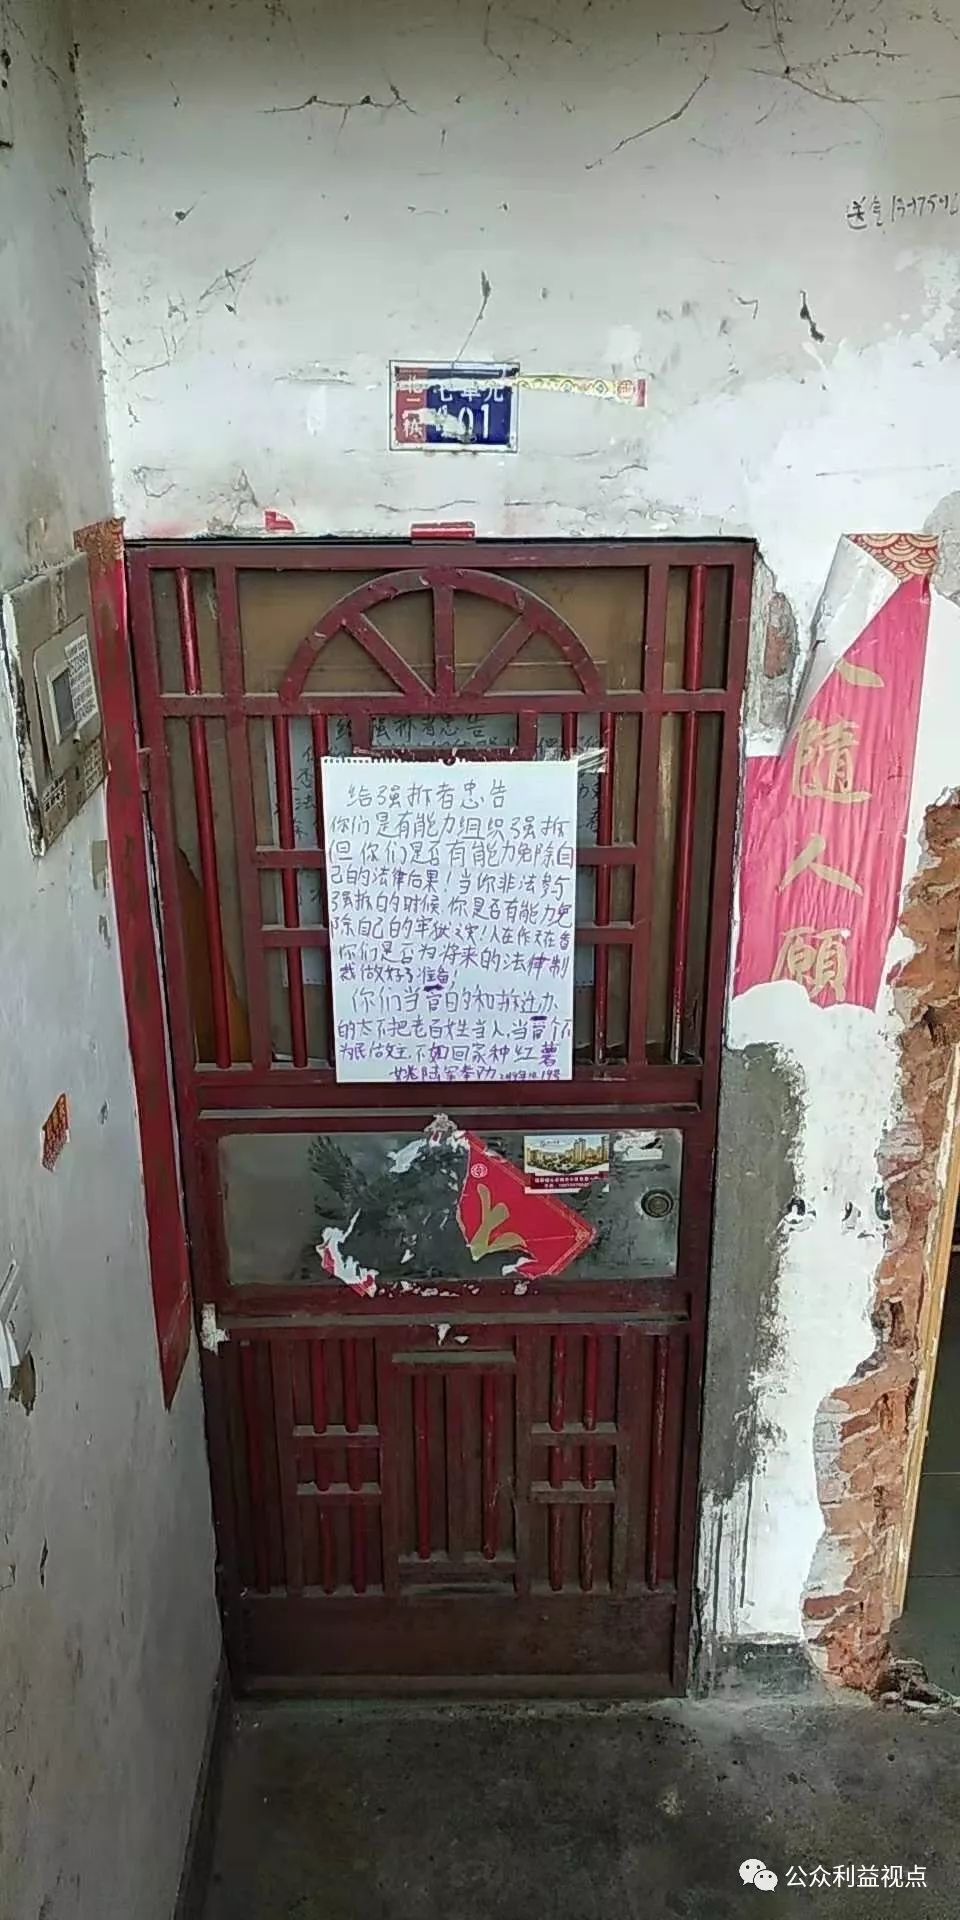 送气
七单元
01
随人願
给强拆者忠告
给强拆者忠告
你们是有能力组织强拆
但你们是否有能力免除自
己的法律后果！当你非法参与
强拆的时候你是否有能力免
除自己的牢狱之灾！人在作天在看
你们是否为将来的法律制
裁做好了准备！
你们当官的和拆迁办
的太不把老百姓当人，当官不
为民做主，不如回家种红薯
上
公众利益视点